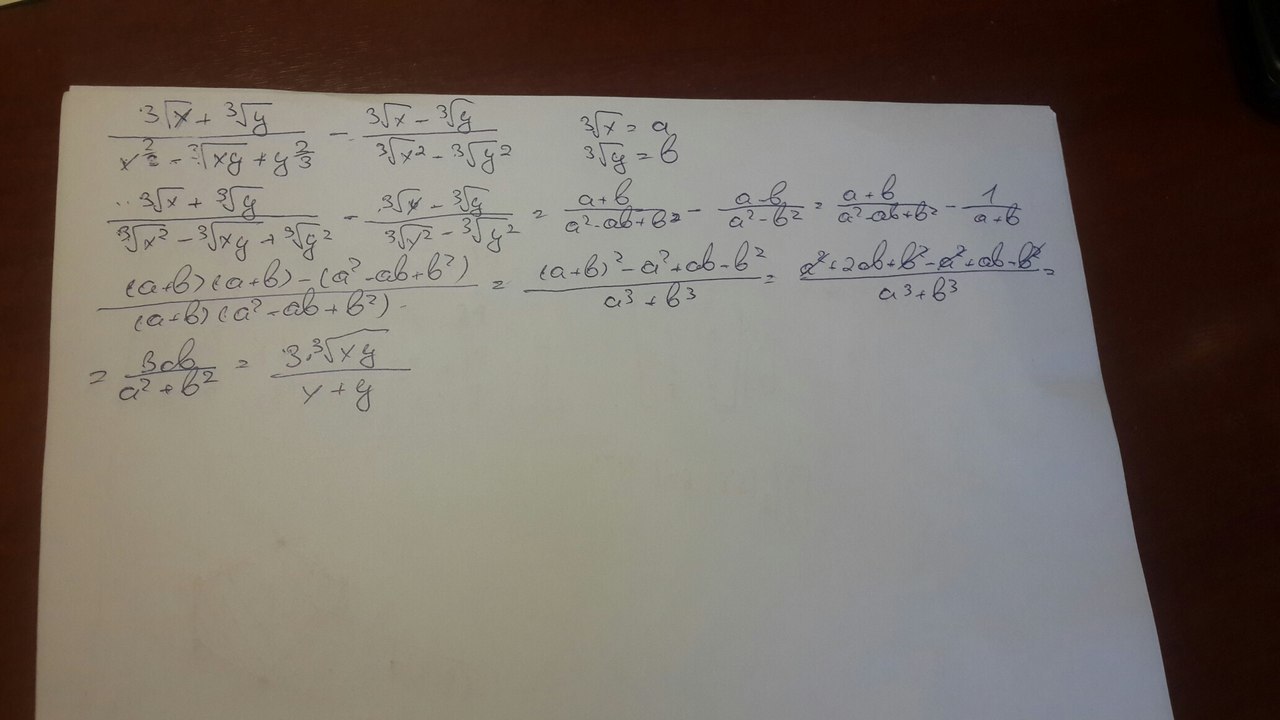 (∛x + ∛y)/(x^(2/3) - ∛(xy) + y^(2/3)) - (∛x - ∛y)/(∛x² - ∛y²)   ∛x = a
∛y = b
(∛x + ∛y)/(∛x² - ∛(xy) + ∛y²) - (∛x - ∛y)/(∛x² - ∛y²) = (a+b)/(a²-ab+b²) - (a-b)/(a²-b²) = (a+b)/(a²-ab+b²) - 1/(a+b)
((a+b)(a+b) - (a²-ab+b²))/((a+b)(a²-ab+b²)) = ((a+b)² - a² + ab - b²)/(a³+b³) = (a²+2ab+b²-a²+ab-b²)/(a³+b³) =
= 3ab/(a²+b²) = (3·∛(xy))/(x+y)